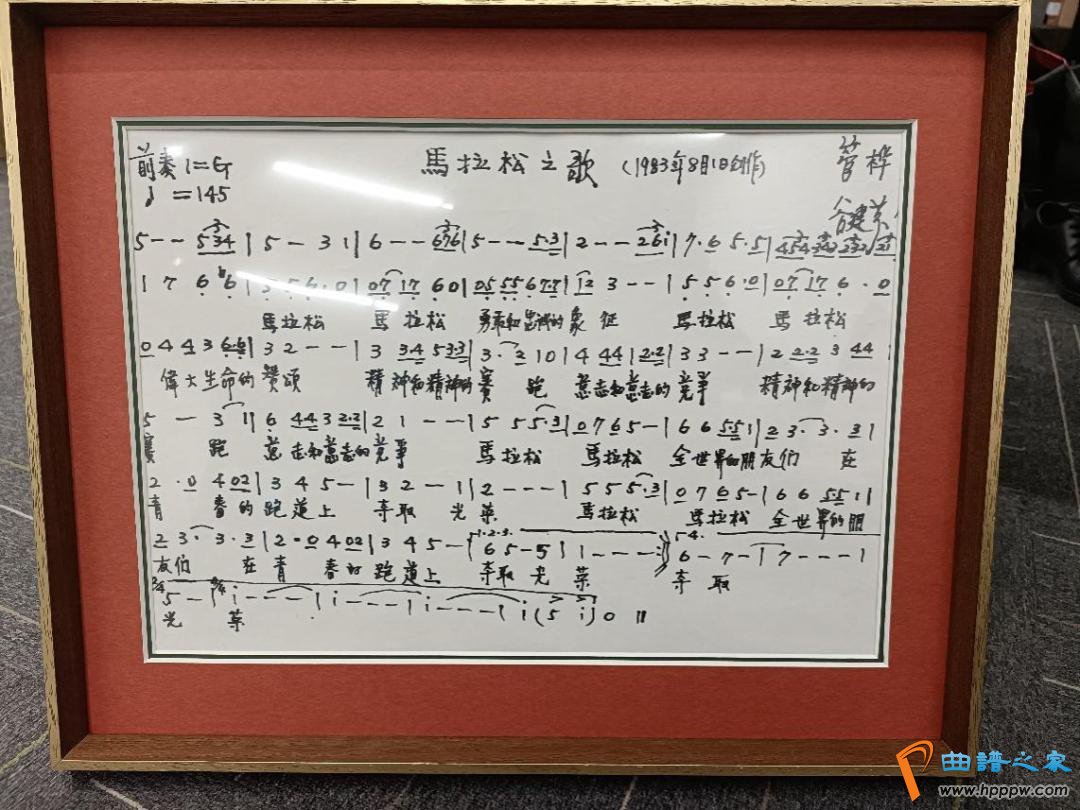 馬拉松之歌 (1983年8月1日创作)
管桦
谷建芬
前奏 1=G
♩=145
5 - - 534 | 5 - 3 1 | 6 - - 676 | 5 - - 5·3 | 2 - - 26i | 7·6 5·5 |
1 7 6 ♭6
馬拉松 馬拉松 勇敢和 的象征 馬拉松 馬拉松
0 4 4 3 6·6 | 3 2 - - | 3 3·4 5 3·3 | 3·2 1 0 | 4 4 4 1 2·2 | 3 3 - - | 2 2·2 3 44 |
偉大生命的贊頌 精神和精神的賽跑 意志和意志的竞争 精神和精神的
5 - 3 1 | 6 44 3 2·2 | 2 1 - - | 5 5 5·3 | 0 7 6 5 - | 6 6 5·5 1 | 2 3· 3·3 |
賽跑 意志和意志的竞争 馬拉松 馬拉松 全世界的朋友们 在
2·0 4 02 | 3 4 5 - | 3 2 - 1 | 2 - - - | 5 5 5·3 | 0 7 6 5 - | 6 6 5·5 1 |
青春的跑道上 夺取光荣 馬拉松 馬拉松 全世界的朋
2 3· 3·3 | 2·0 4 02 | 3 4 5 - | 6 5 - 5 | 1 - - - :‖ 6 - 7 - | 7 - - - |
1.2.3.
4.
友们 在青春的跑道上 夺取光荣 夺取
2/4 5 - | 4/4 i - - - | i - - - | i - - - | i (5 i) 0 ‖
光荣
曲譜之家
www.hpppw.com